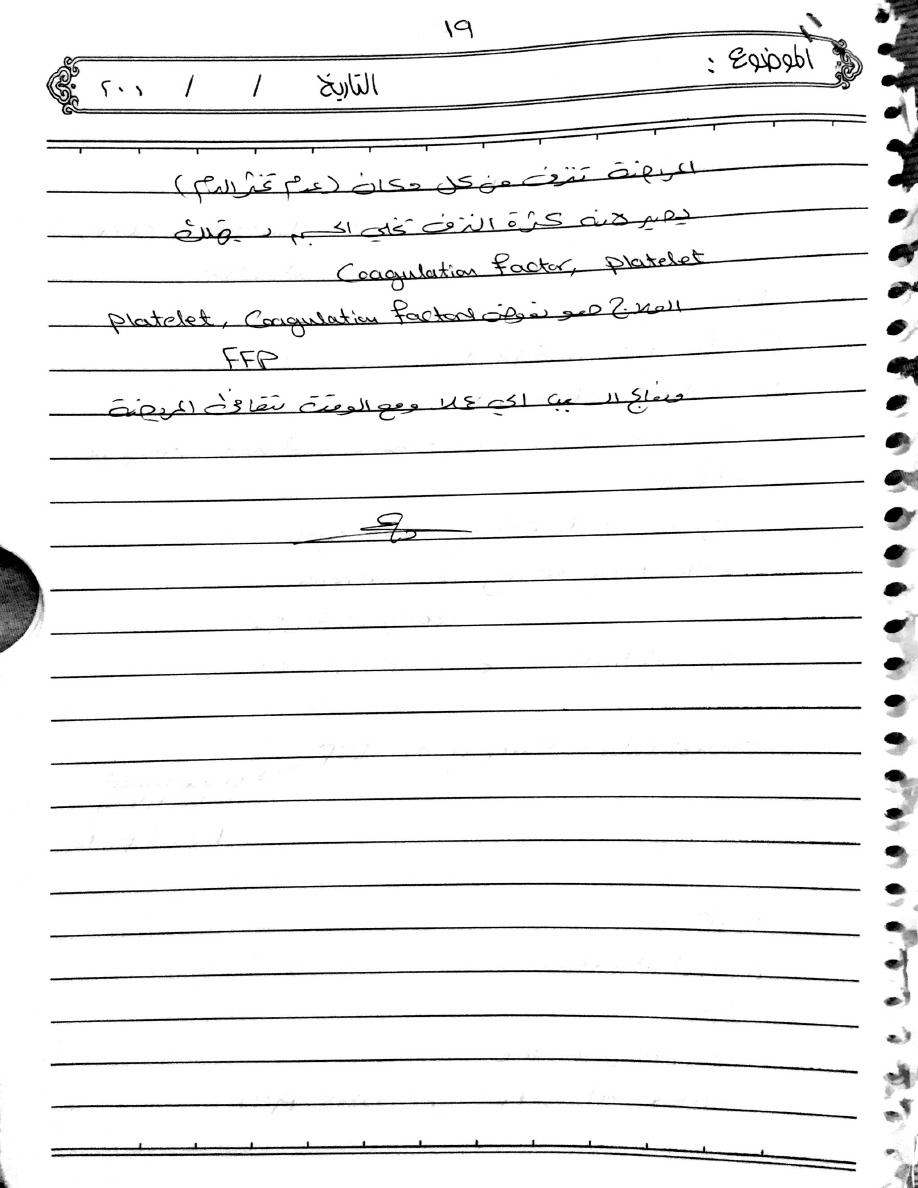 ١٩
الموضوع :
التاريخ / / ٢٠٠١
المريضة تنزف من كل مكان (عدم تخثر الدم)
يصير لانه كثرة النزف تخلي الجسم يستهلك
Coagulation factor, platelet
العلاج هو نعوض platelet, Coagulation factors
FFP
ونعالج السبب الي علا ومع الوقت تتعافى المريضة